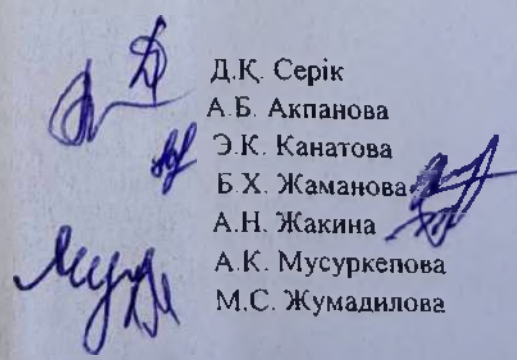 Д.Қ. Серік
А.Б. Акпанова
Э.К. Канатова
Б.Х. Жаманова
А.Н. Жакина
А.К. Мусуркепова
М.С. Жумадилова